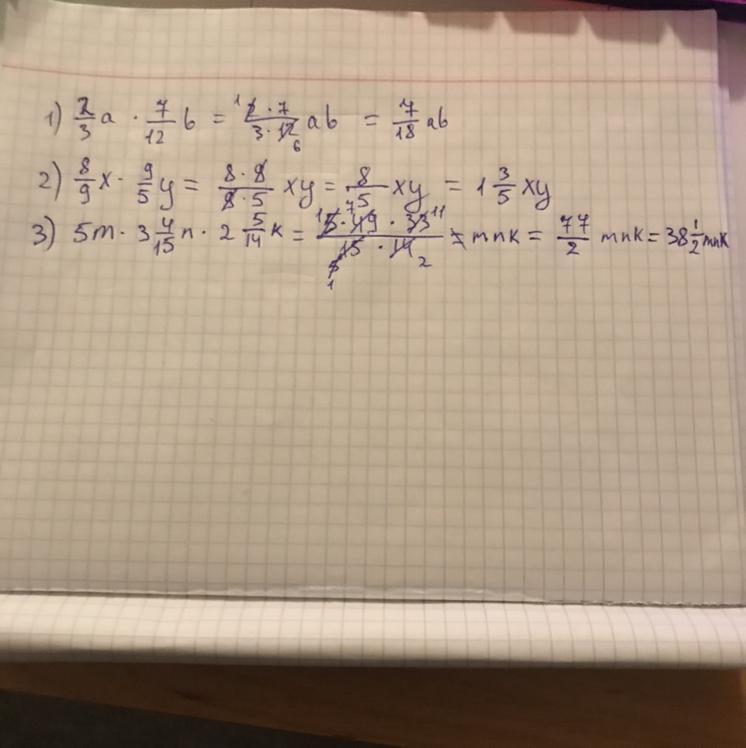 1) 2/3 a · 7/12 b = (2 · 7)/(3 · 12) ab = 7/18 ab
2) 8/9 x · 9/5 y = (8 · 8)/(8 · 5) xy = 8/5 xy = 1 3/5 xy
3) 5m · 3 4/15 n · 2 5/14 k = (5 · 49 · 33)/(15 · 14) mnk = 77/2 mnk = 38 1/2 mnk